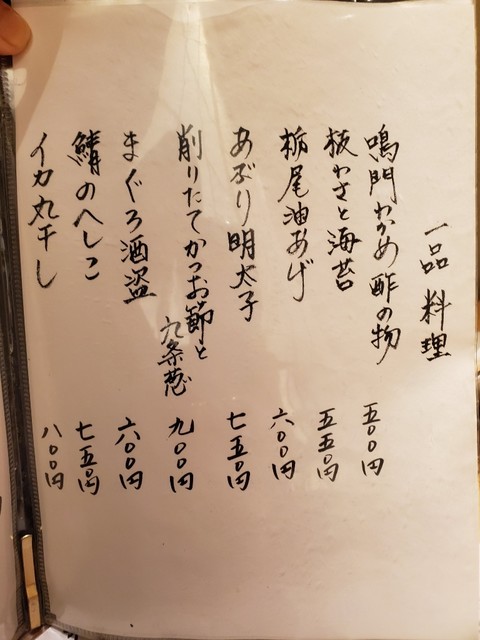 一品料理
鳴門わかめ酢の物 五〇〇円
板わさと海苔 五五〇円
栃尾油あげ 六〇〇円
あぶり明太子 七五〇円
削りたてかつお節と
九条葱 九〇〇円
まぐろ酒盗 六〇〇円
鯖のへしこ 七五〇円
イカ丸干し 八〇〇円